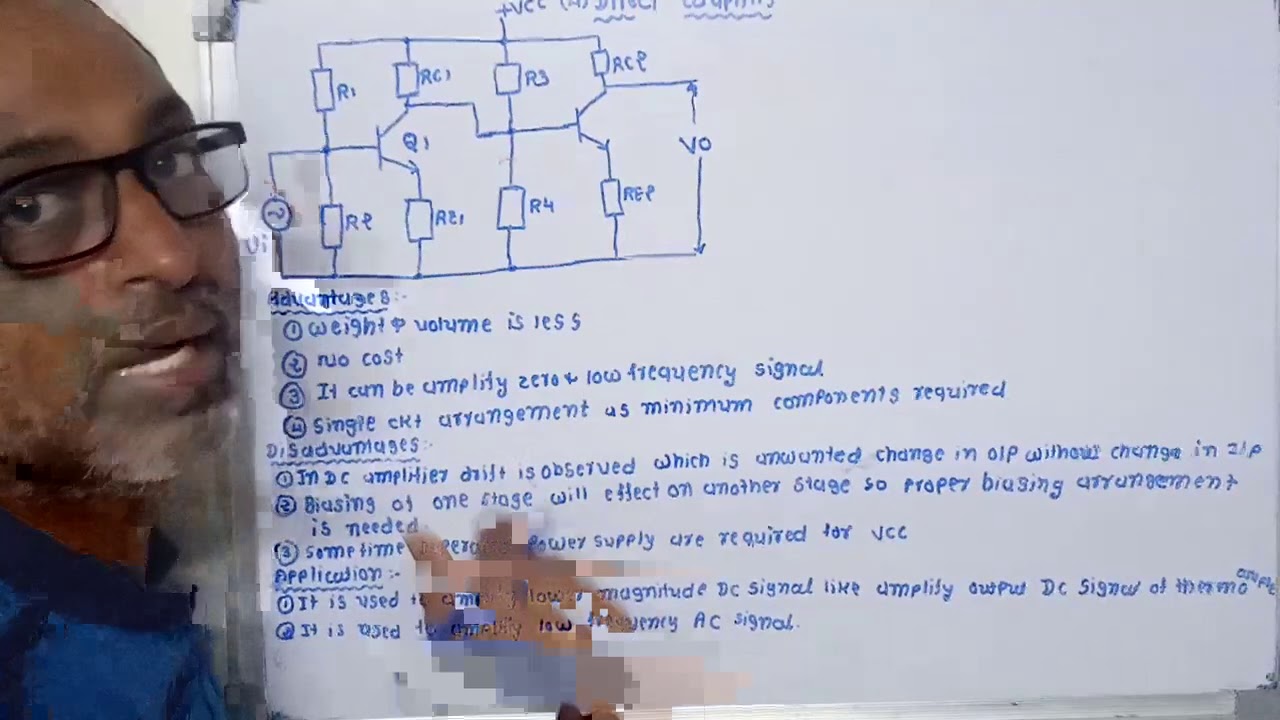 +VCC (4) Direct Coupling
R1
RC1
R3
RC2
Q1
VO
Vi
R2
RE1
R4
RE2
Advantages:-
① weight & volume is less
② NO cost
③ It can be amplify zero & low frequency signal
④ Single ckt arrangement as minimum components required
Disadvantages:-
① In DC amplifier drift is observed which is unwanted change in O/P without change in I/P
② Biasing of one stage will effect on another stage so proper biasing arrangement
is needed.
③ Sometime power supply are required for VCC
Application:-
① It is used to amplify lower magnitude DC signal like amplify output DC signal of thermo
② It is used to amplify low frequency AC signal.